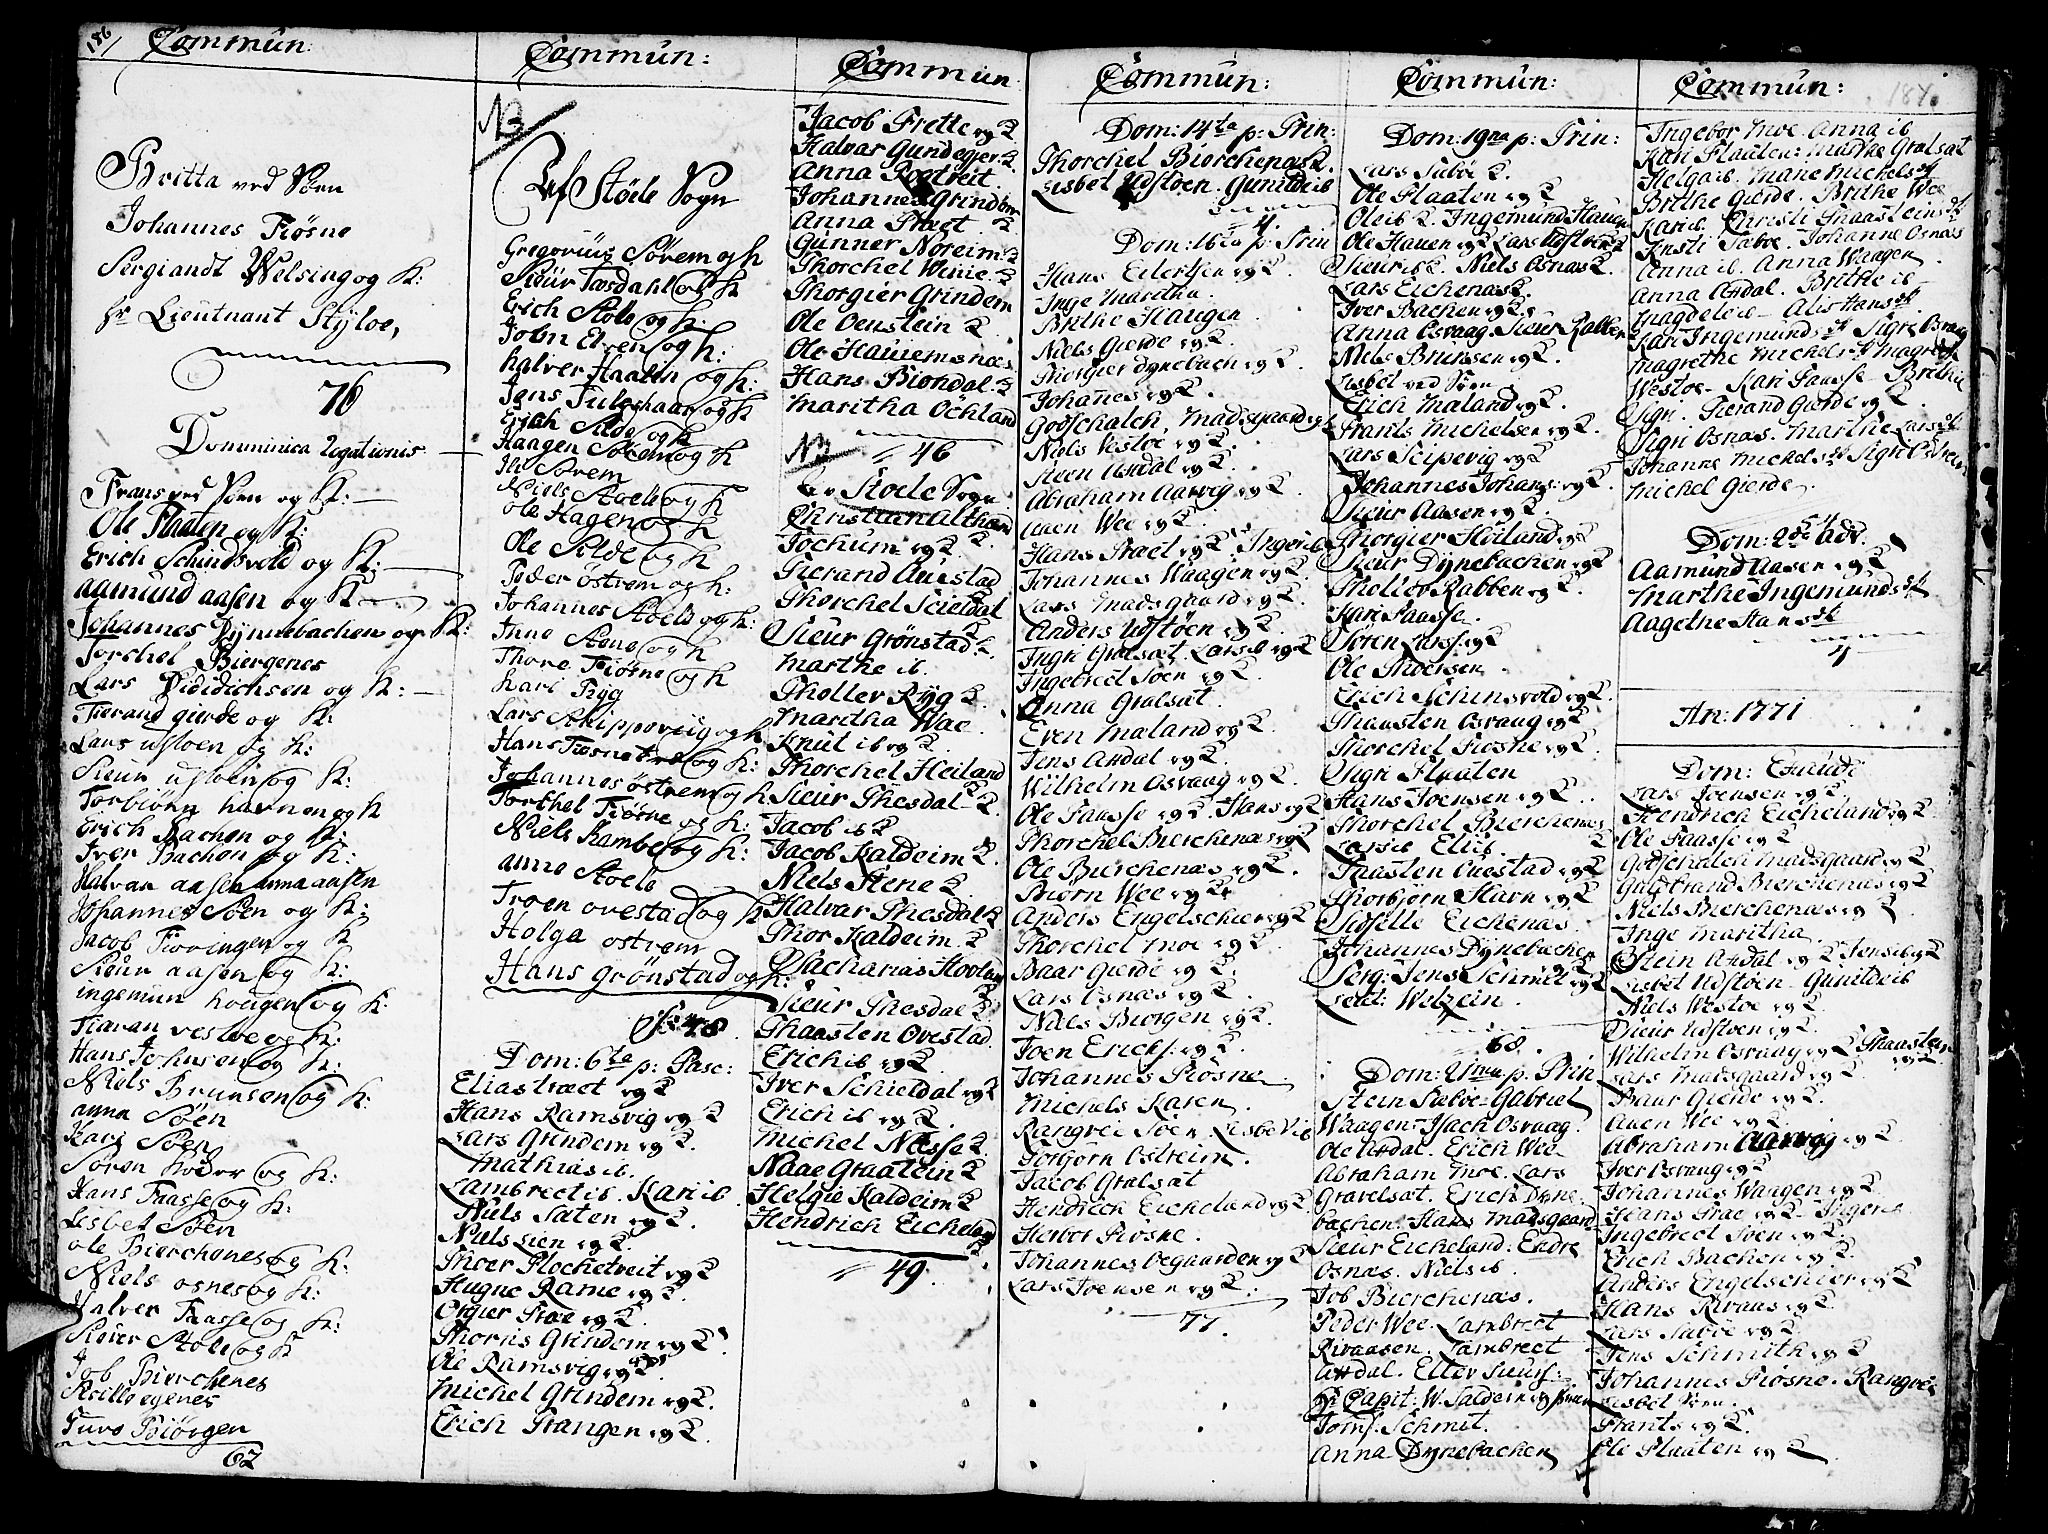 186
Commun:
Britta ved Söen
Johannes Fiösne
Sergiandt Welsing og K:
hr Lieutnant Styloe,
76
Domminica rogationis
Frans ved Söen og K:
Ole Flaaten og K:
Erich Schindsvold og K:
aamund aasen og K
Johannes Dynnebachen og K:
Torchel Biergenes
Lars Dididichsen og K:
Tierand gierde og K:
Lars udstoen og K:
Sieur udstoen og K:
Torbiörn havnen og K
Erich Bachen og K:
Iver Bachen og K:
Halvar aasen anna aasen
Johannes Söen og K:
Jacob Fiovingen og K
Sieur aasen og K:
ingemun hougen og K:
Tiaran vestoe og K:
Hans Johnsen og K:
Niels Brunsen og K:
anna Söen
Kari Söen
Sören Koder og K:
Hans Faasse og K:
Lisbet Söen
ole Bierchenes og K:
Niels osnes og K:
Halver Faasse og K:
Siever Stole og K
Job Bierchenes
Turo Biörgen
62
Commun:
NB
Af Stöile Sogn
Gregorius Sörem og K
Sieur Tesdahl og K
Erich Stole og K
John Elven og K:
halver Haalen og K:
Jens Tuleshaar og K
Erich Silde og K
Haagen Sörem og K
Ile Sörem
Niels Stoele og K
ole Hagen og K
Ole Silde og K
Peder östrem og K:
Johannes Stoele og K:
Jens Stene og K
Thore Fiösne og K
Kari Tryg
Lars Skippeviig og K
Hans Fiosne og K:
Johannes östrem og K
Torchel Fiösne og K:
Niels Rambe og K:
anne Stoele
Troen ovestad og K
Holga ostrem
Hans grönstad og K:
48
Dom: 6ta p: Pasc:
Elias træet og K
Hans Ramsvig og K
Lars Grindem og K.
Mathias ib.
Lambrect ib. Kari ib
Niels Saten og K.
Niels Lien og K.
Thoer Flochetveit og K
Hugne Rame og K.
Orgier Træ og K.
Thoris Grindem og K
Ole Ramsvig og K
Michel Grindem og K.
Erich Stangen og K.
Commun
Jacob Frette og K
Halvar Gundegjer K
Anna Rogtveit
Johannes Grindem
Anna Præst
Gunner Noreim K
Thorchel Winie K
Thorgier Grindem
Ole Oenstein K
Ole Hauemsnæs
Hans Biondal K
Maritha Ochland
NB 46
Af Stoele Sogn
Christian Althand
Jochum og K.
Tierand Auestad
Thorchel Scieldal
Sieur Grönstad K
Marthe ib.
Tholler Ryg K
Maritha Wae
Knut ib og K
Thorchel Heiland
Sieur Thesdal K
Jacob ib K
Jacob Kaldeim K
Niels Stene K
Halvar Thesdal K
Thor Kaldeim K
Zacharias Hovland
Sieur Thesdal K
Thaasten Ovestad
Erich ib og K.
Iver Schieldal og K
Erich ib og K.
Michel Næsse K
Naae Graatein K
Helgie Kaldeim K
Hendrich Eicheland K
49.
Commun:
Dom: 14ta p: Trin:
Thorchel Bierchenæs K.
Lisbet Udstöen. Gunild ib
4.
Dom: 16ta p: Trin
Hans Eilertsen og K.
Inge Maritha.
Brithe Haugen.
Niels Gierde og K.
Thorgier Dynebach og K.
Johanes og K.
Godschalch Madsgaard og K
Niels Vestoe og K.
Steen Asdal og K.
Abraham Aarvig og K.
Auen Wee og K.
Hans Præst og K. Inger ib
Johannes Waagen og K.
Lars Madsgaard og K.
Anders Udstöen og K.
Ingri Gralsæt. Lars ib og K
Ingebret Söen og K.
Anna Gralsæt.
Even Maland og K.
Jens Asdal og K.
Wilhelm Osvaag og K.
Ole Faasse og K. Hans og K
Thorchel Bierchenæs og K
Ole Bierchenæs og K.
Biörn Wee og K.
Anders Engelschier og K
Thorchel Moe og K.
Baar Gierde og K.
Lars Osnæs og K.
Niels Biorgen og K.
Joen Erichs: og K.
Johannes Fiösne
Michels Karen.
Rangvei Söen. Lisbet ib
Torbjorn Ostreim.
Jacob Gralsæt
Hendrich Eicheland og K.
Herbor Fiosne.
Johannes Degaarden og K
Lars Joensen og K.
77.
Commun:
Dom: 19na p: Trin:
Lars Sæböe K.
Ole Flaaten og K
Ole ib K. Ingemund Hauen
Ole Hauen og K. Lars Udstöen K
Sieur ib K. Niels Osnæs K.
Lars Eichenæs K.
Iver Bachen og K.
Anna Osvaag. Sieur Rabben
Niels Brunsen og K.
Lisbet ved Söen
Erich Maland og K.
Frants Michelsen og K.
Lars Scipevig og K
Johannes Johans: og K.
Sieur Aasen og K.
Thorgier Heiland og K
Sieur Dynebachen og K
Thollev Rabben og K.
Kari Faasse.
Sören Larss: og K
Ole Thoersen.
Erich Schinsvold og K.
Thaasten Osvaag og K
Thorchel Fiosne og K.
Sigri Flaaten
Hans Joensen og K.
Thorchel Bierchenæs K
Lars ib Eli ib.
Taasten Ouestad og K
Thorbjörn Havn og K.
Sidselle Eichenæs.
Johannes Dynebachen og K
Serg: Jens Schmit og K
Seldt: Welzein.
68.
Dom: 21ma p: Trin
Stein Sæböe Gabriel
Waagen Isach Osvaag
Ole Asdal. Erich Wee
Abraham Moe. Lars
Gravelsæt. Erich Dyne-
bachen. Hans Madsgaard
Sieur Eicheland: Endre
Osnæs. Niels ib.
Job Bierchenæs.
Peder Wee. Lambrect
Rivaasen. Lambrect
Asdal. Ellev Siurs:
Hr Capit: W. Saldern og Fruen
Tomf. Schmit.
Anna Dynebachen
Commun: 187.
Ingebor Moe. Anna ib
Kari Flaaten. Martha Gralsæt
Helga ib. Mane Michelsdt
Brithe Gierde. Brithe Wee
Kari ib. Christi Thaasteinsdt
Kristi Sæböe. Johanne Osnæs
Anna ib. Anna Waagen.
Anna Asdal. Brithe ib
Magdele ib. Alis Hansdt
Kari Ingemundsdt Sigri Osvaag
Magrethe Michelsdt Magrethe
Westoe. Kari Faasse. Brithe
Sign. Tierand Gierde og K.
Sigri Osnæs. Marthe Larsdt
Johanne Michelsdt Sigri Udstöen
Michel Gierde.
Dom: 2da Adv:
Aamund Aasen og K
Marthe Ingemundsdt
Aagethe Hansdt
4
An: 1771
Dom: Exaudi
Lars Joensen og K.
Hendrich Eicheland og K.
Ole Faasse og K
Godschalch Madsgaard og K
Guldbrand Bierchenæs og K
Niels Bierchenæs og K.
Inge Maritha.
Stein Asdal og K Jens ib og K
Lisbet Udstöen. Gunild ib
Niels Westoe og K.
Sieur Udstoen og K.
Wilhelm Osvaag og K Thaasten og K
Lars Madsgaard og K.
Baar Gierde og K.
Auen Wee og K.
Abraham Aarvigg og K
Iver Osvaag og K
Johannes Waagen og K.
Hans Præ og K. Inger ib
Ingebrect Söen og K.
Erich Bachen og K.
Anders Engelschier og K
Hans Rivaas og K.
Lars Sæböe og K.
Jens Schmith og K
Johannes Fiösne. Rangvei
Lisbet Söen.
Frants og K.
Ole Flaaten og K